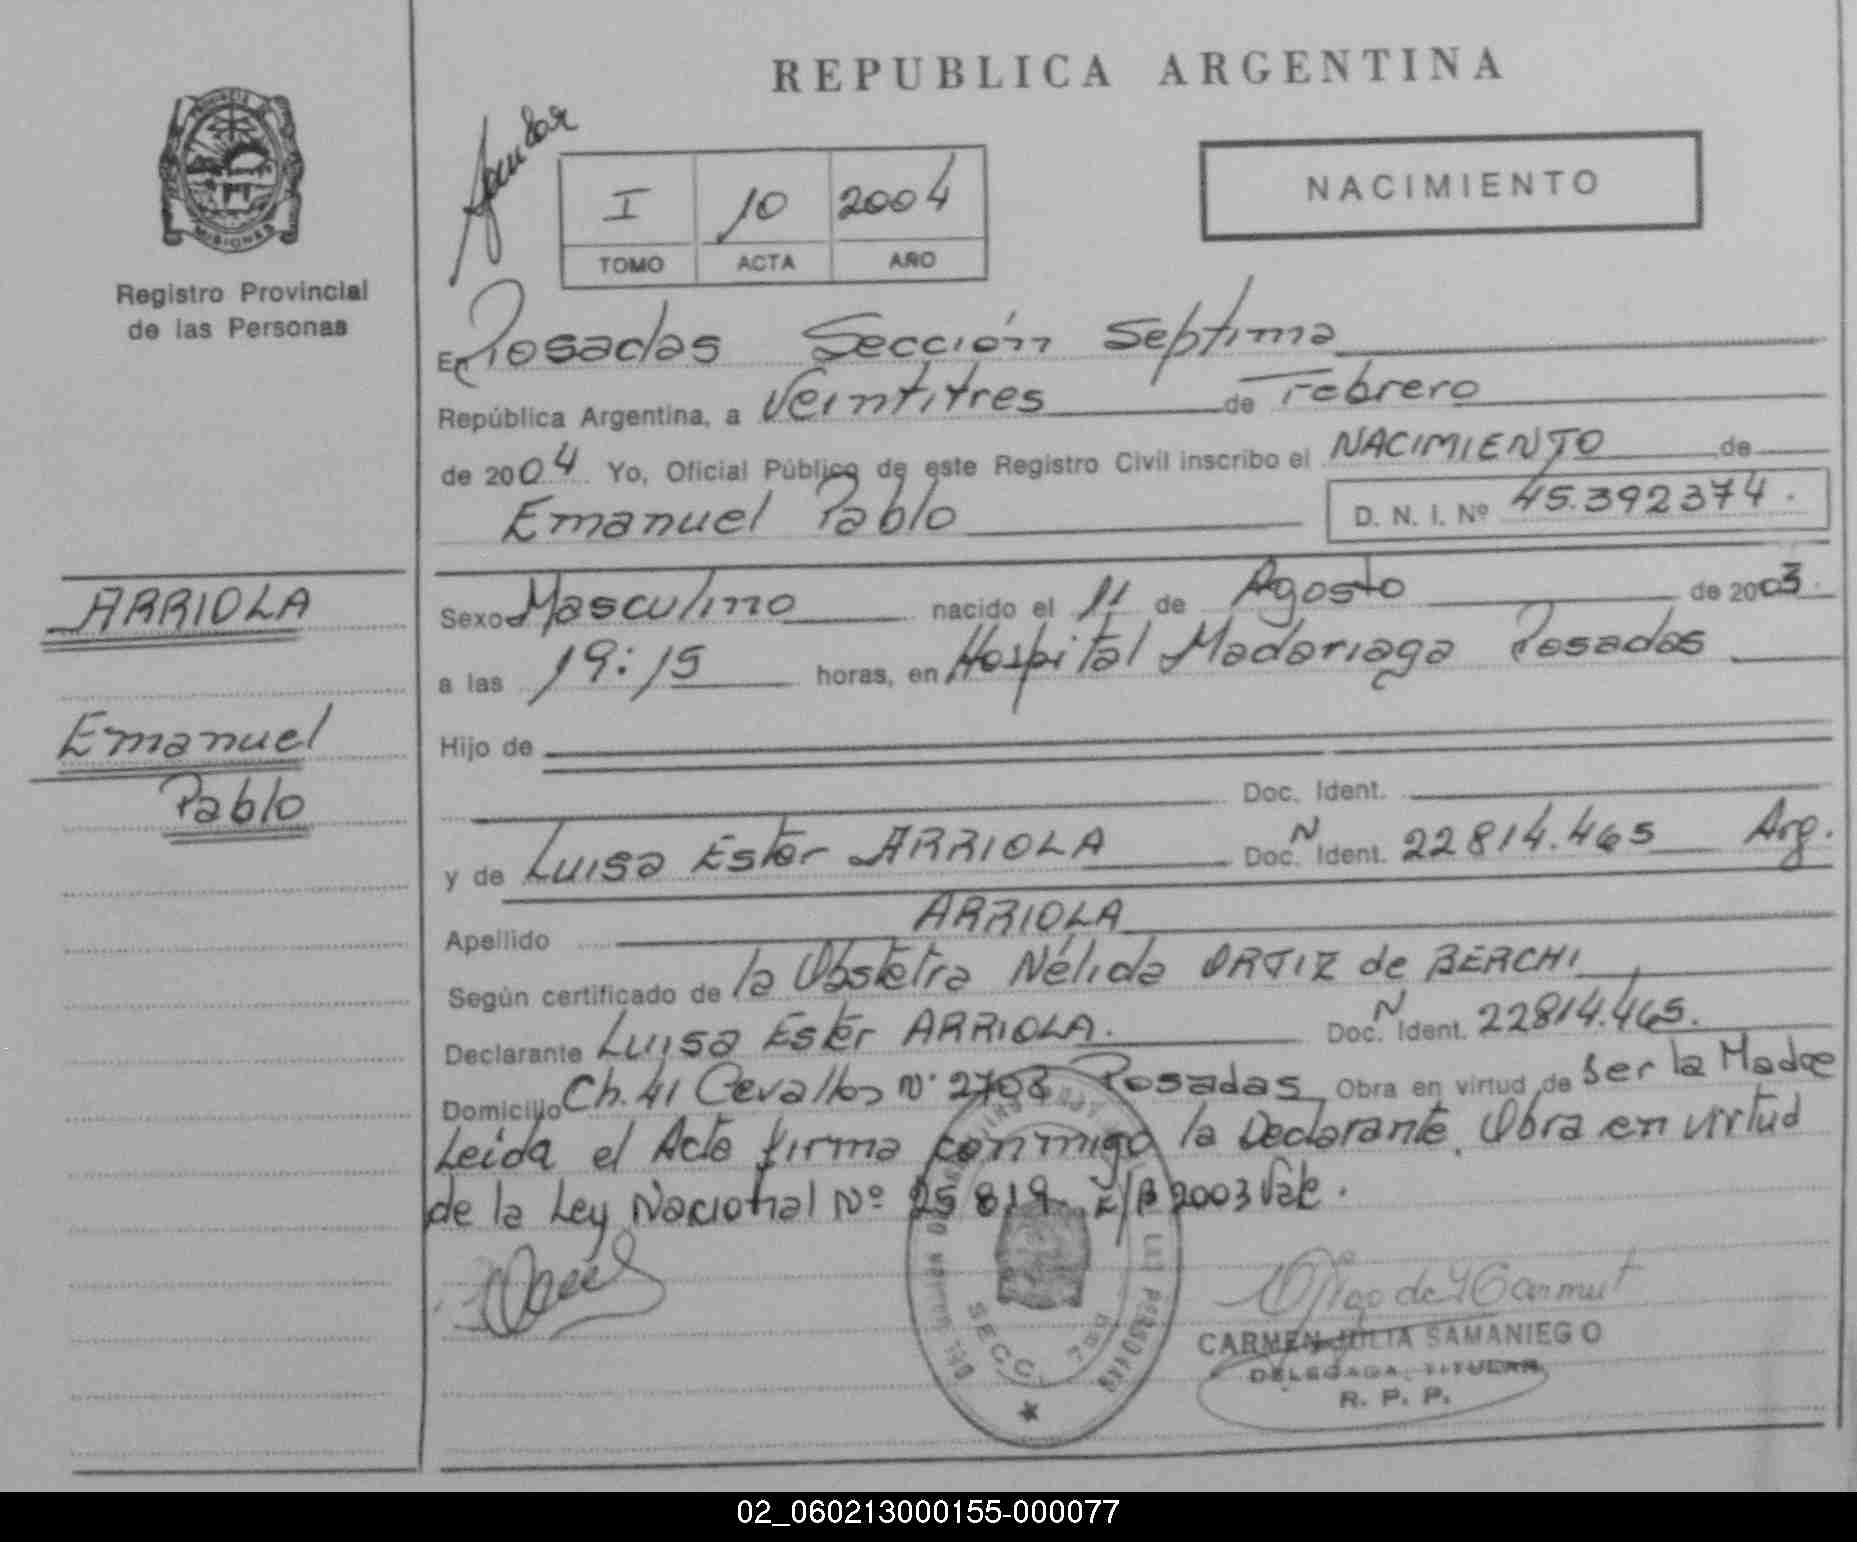 REPUBLICA ARGENTINA
PROVINCIA DE
MISIONES
Registro Provincial
de las Personas
I 10 2004
TOMO ACTA AÑO
NACIMIENTO
En Posadas Sección Septima
República Argentina, a Veintitres de Febrero
de 2004 Yo, Oficial Público de este Registro Civil inscribo el NACIMIENTO de
Emanuel Pablo D. N. I. Nº 45.392374.
ARRIOLA
Emanuel
Pablo
Sexo Masculino nacido el 11 de Agosto de 2003.
a las 19:15 horas, en Hospital Madariaga Posadas
Hijo de
Doc. Ident.
y de Luisa Ester ARRIOLA Doc. N Ident. 22814.465 Arg.
Apellido ARRIOLA
Según certificado de la Obstetra Nélida ORTIZ de BERCHI
Declarante Luisa Ester ARRIOLA. Doc. N Ident. 22814.465.
Domicilio Ch. 41 Cevallos Nº 2703 Posadas Obra en virtud de ser la Madre
Leida el Acta firma conmigo la Declarante. Obra en virtud
de la Ley Nacional Nº 25819. E/R 2003 Vale.
SECC.
CARMEN JULIA SAMANIEGO
DELEGADA TITULAR
R. P. P.
02_060213000155-000077